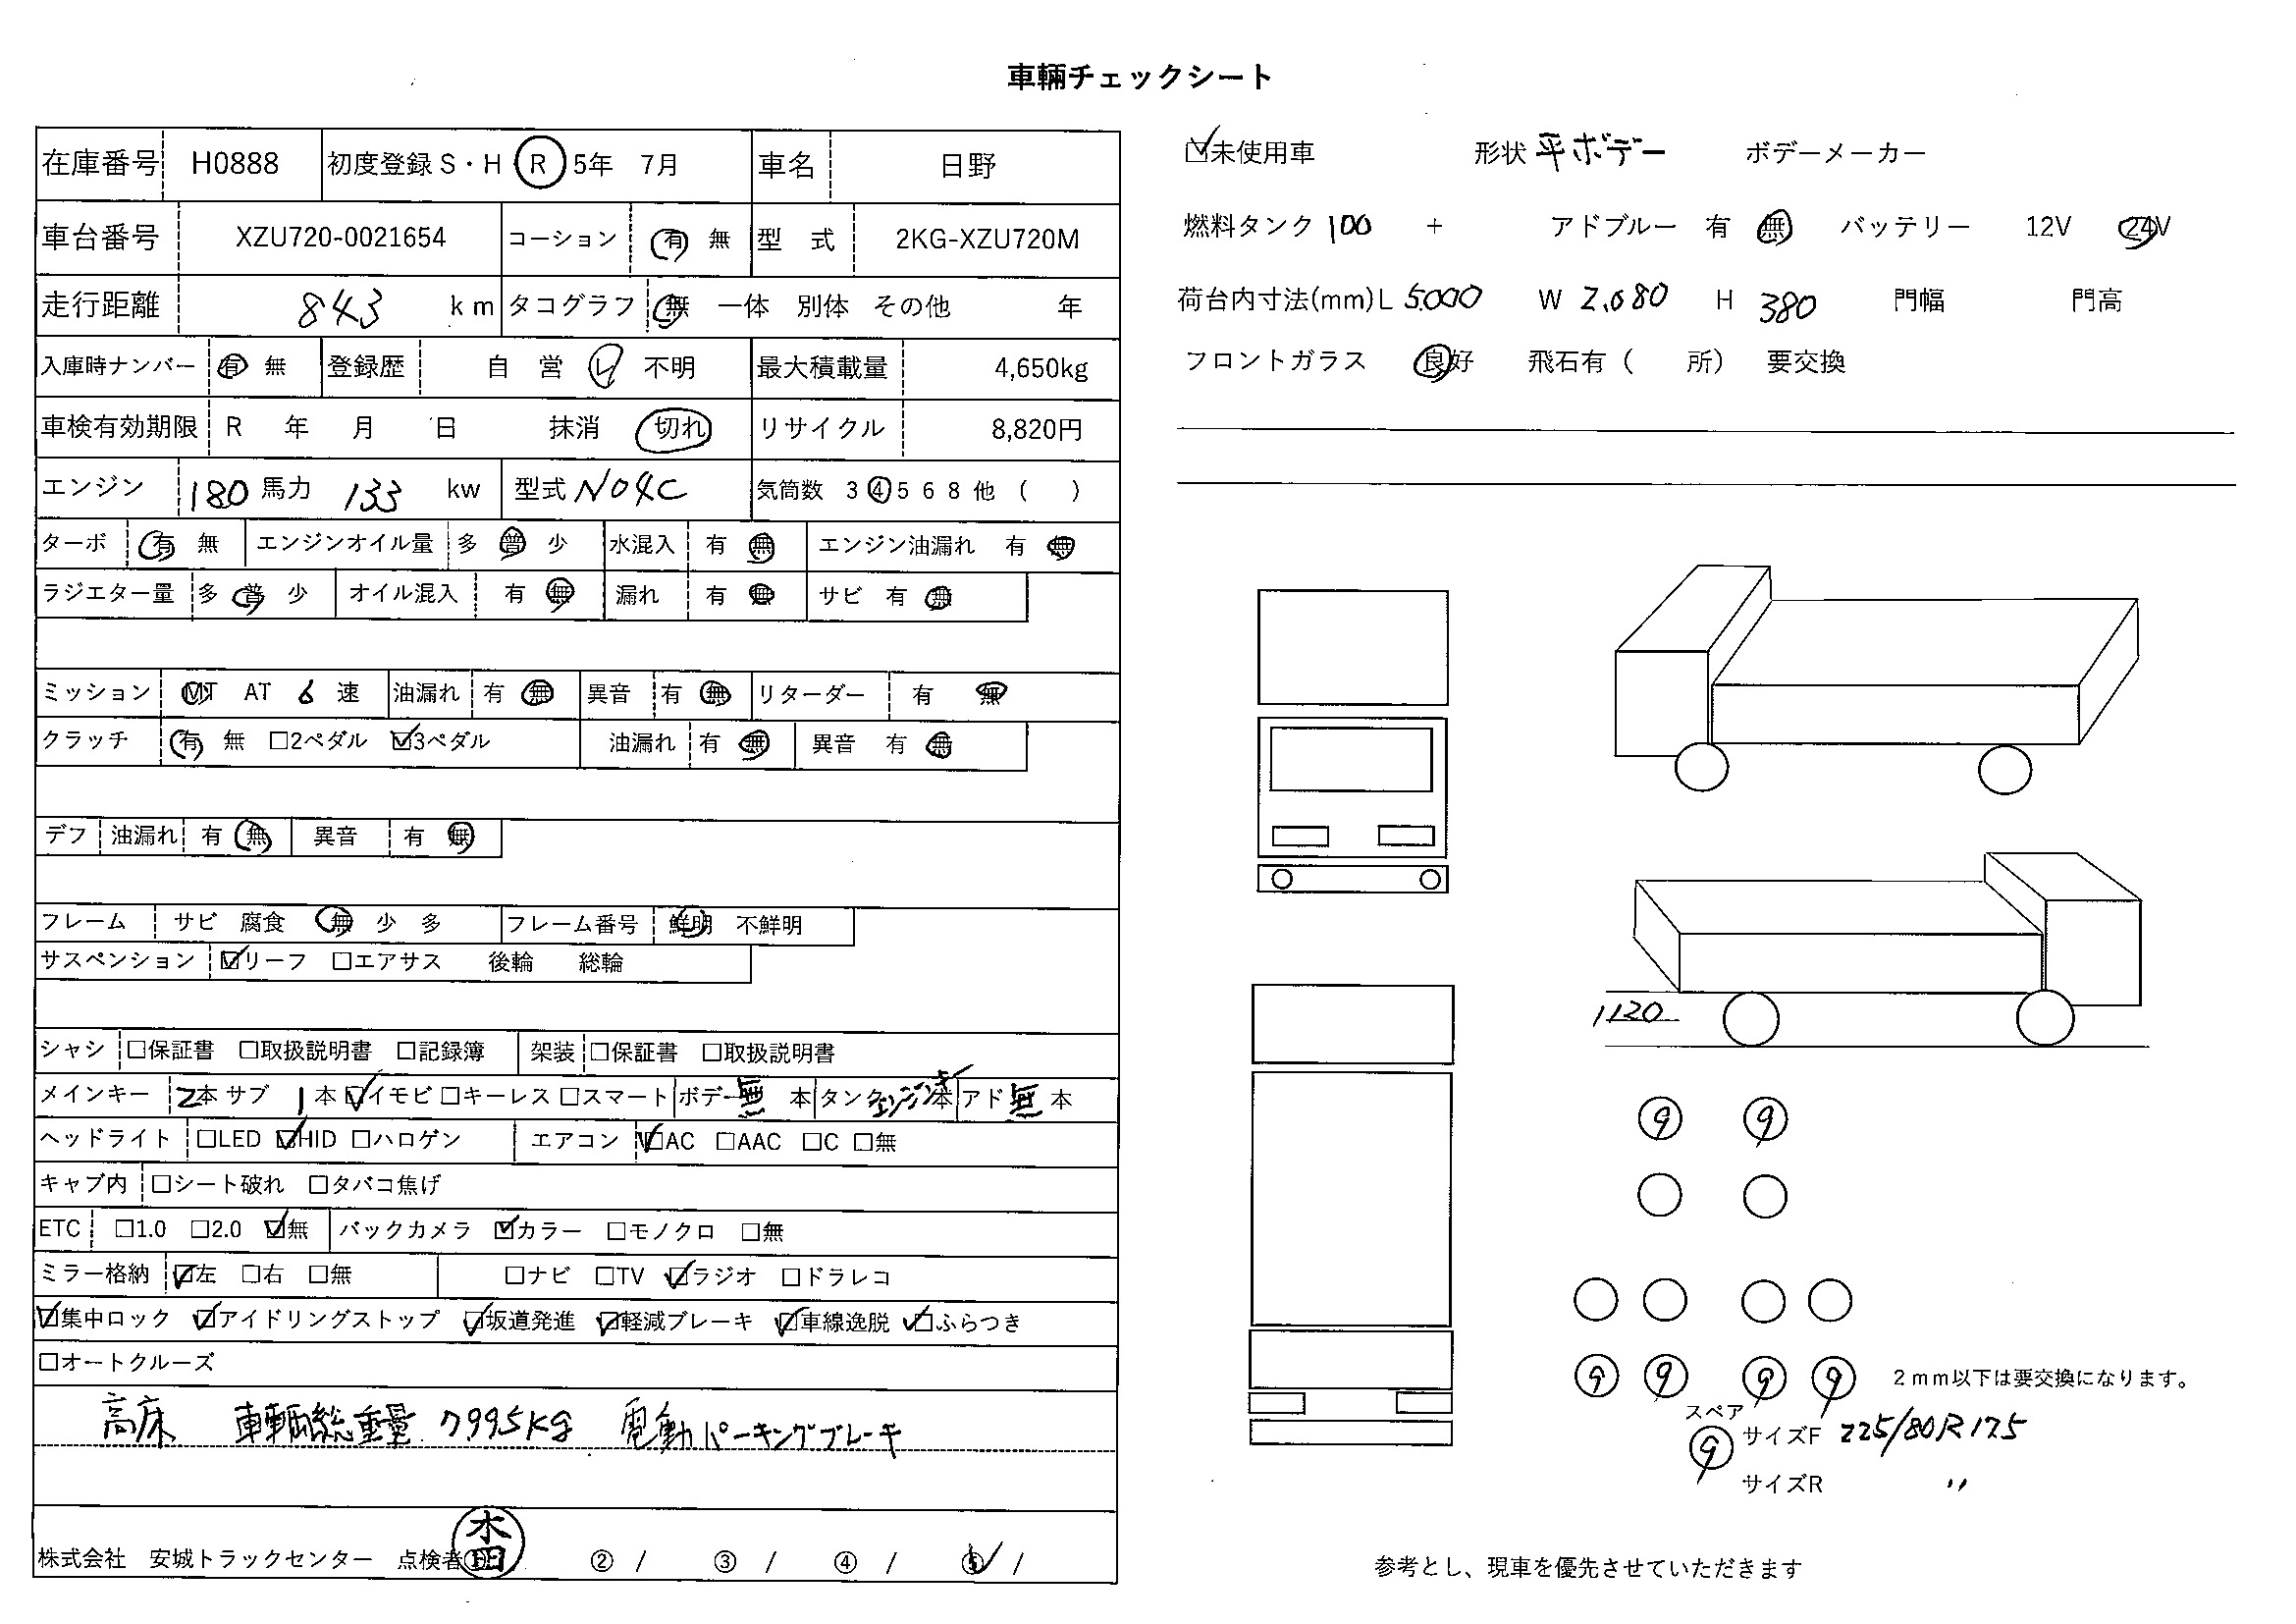 車輌チェックシート
在庫番号 H0888 初度登録 S・H R 5年 7月 車名 日野
車台番号 XZU720-0021654 コーション 有 無 型 式 2KG-XZU720M
走行距離 843 km タコグラフ 無 一体 別体 その他 年
入庫時ナンバー 有 無 登録歴 自 営 レ 不明 最大積載量 4,650kg
車検有効期限 R 年 月 日 抹消 切れ リサイクル 8,820円
エンジン 180 馬力 133 kw 型式 N04C 気筒数 3 4 5 6 8 他 ( )
ターボ 有 無 エンジンオイル量 多 普 少 水混入 有 無 エンジン油漏れ 有 無
ラジエター量 多 普 少 オイル混入 有 無 漏れ 有 無 サビ 有 無
ミッション MT AT 6 速 油漏れ 有 無 異音 有 無 リターダー 有 無
クラッチ 有 無 □2ペダル ☑3ペダル 油漏れ 有 無 異音 有 無
デフ 油漏れ 有 無 異音 有 無
フレーム サビ 腐食 無 少 多 フレーム番号 鮮明 不鮮明
サスペンション ☑リーフ □エアサス 後輪 総輪
シャシ □保証書 □取扱説明書 □記録簿 架装 □保証書 □取扱説明書
メインキー 2本 サブ 1本 ☑イモビ □キーレス □スマート ボデー 無 本 タンク エンジンキー 本 アド 無 本
ヘッドライト □LED ☑HID □ハロゲン エアコン ☑AC □AAC □C □無
キャブ内 □シート破れ □タバコ焦げ
ETC □1.0 □2.0 ☑無 バックカメラ ☑カラー □モノクロ □無
ミラー格納 ☑左 □右 □無 □ナビ □TV ☑ラジオ □ドラレコ
☑集中ロック ☑アイドリングストップ ☑坂道発進 ☑軽減ブレーキ ☑車線逸脱 ☑ふらつき
□オートクルーズ
高床 車輌総重量 7,995kg 電動パーキングブレーキ
株式会社 安城トラックセンター 点検者① 木田 ② / ③ / ④ / ⑤ /
☑未使用車 形状 平ボデー ボデーメーカー
燃料タンク 100 + アドブルー 有 無 バッテリー 12V 24V
荷台内寸法(mm) L 5000 W 2,080 H 380 門幅 門高
フロントガラス 良好 飛石有 ( 所) 要交換
1120
9 9
9 9 9 9 2mm以下は要交換になります。
スペア
9 サイズF 225/80R17.5
サイズR 〃
参考とし、現車を優先させていただきます